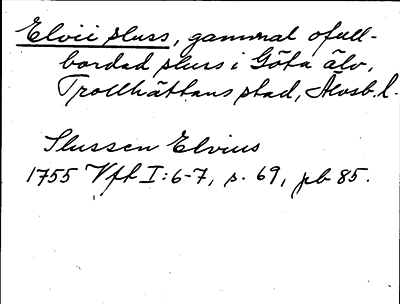 Elvii sluss, gammal ofull-
bordad sluss i Göta älv,
Trollhättans stad, Älvsb. l.
Slussen Elvius
1755 Vft I:6-7, s. 69, pb 85.